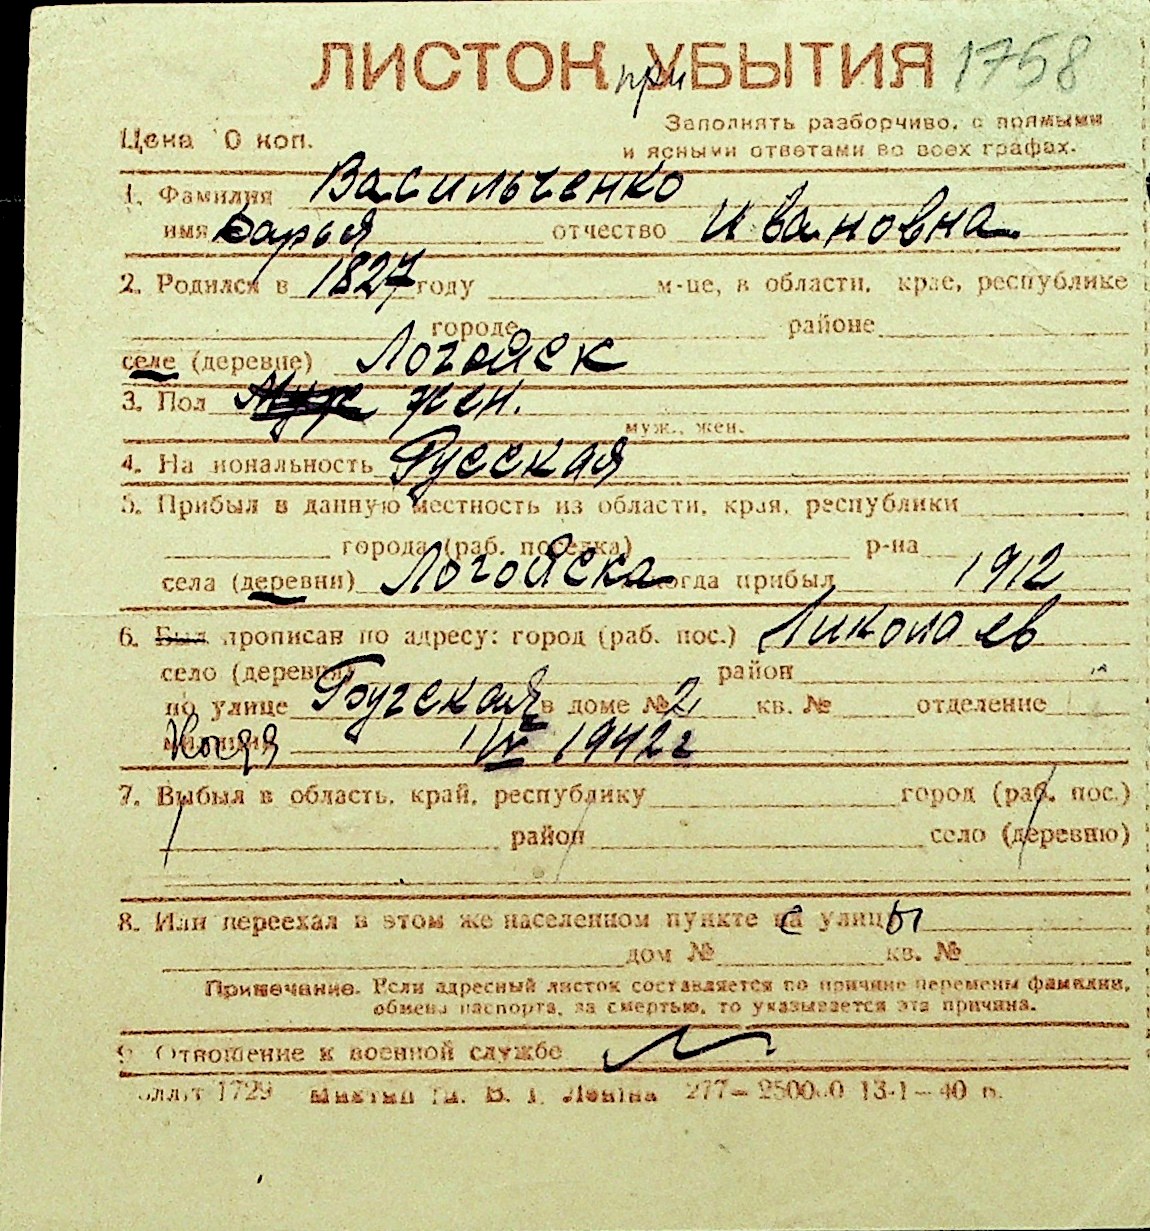 ЛИСТОК УБЫТИЯ 1758
при
Цена 10 коп.
Заполнять разборчиво, с прямыми
и ясными ответами во всех графах.
1. Фамилия Васильченко
имя Дарья отчество Ивановна
2. Родился в 1827 году м-це, в области, крае, республике
городе районе
селе (деревне) Логойск
3. Пол Муж жен.
муж., жен.
4. Национальность Русская
5. Прибыл в данную местность из области, края, республики
города (раб. поселка) р-на
села (деревни) Логойска когда прибыл 1912
6. Был прописан по адресу: город (раб. пос.) Николаев
село (деревня) район
по улице Бугская в доме № 2 кв. № отделение
милиции Когда IV 1942 г
7. Выбыл в область, край, республику город (раб. пос.)
район село (деревню)
8. Или переехал в этом же населенном пункте с улицы
дом № кв. №
Примечание. Если адресный листок составляется по причине перемены фамилии,
обмена паспорта, за смертью, то указывается эта причина.
9. Отношение к военной службе
1729 им. В. И. Ленина 277— 13-1—40